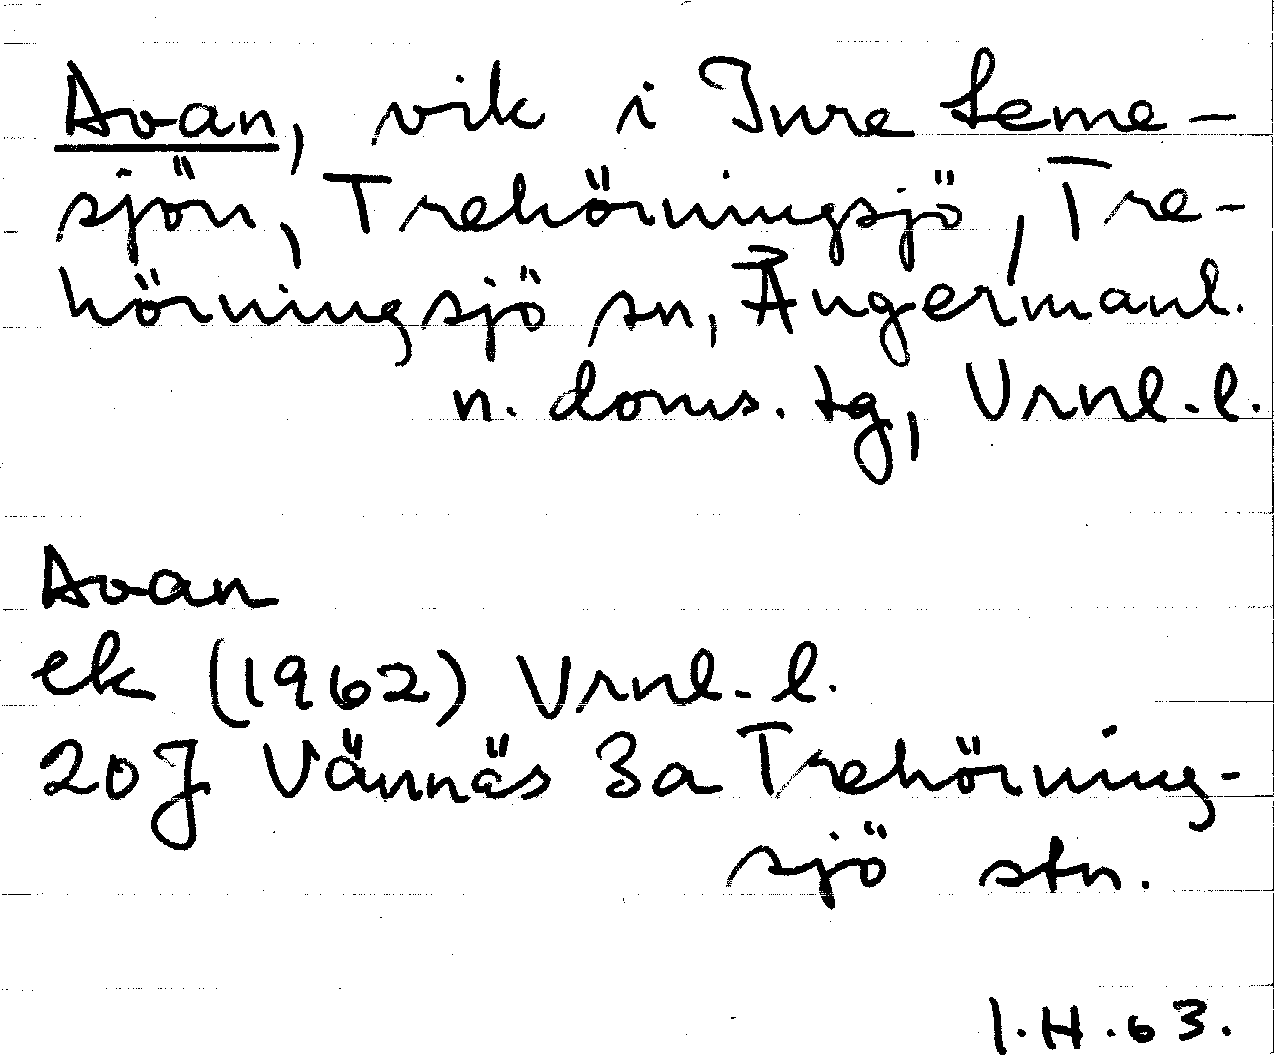 Avan, vik i Inre Leme-
sjön, Trehörningsjö, Tre-
hörningsjö sn, Ångermanl.
n. doms. tg, Vrnl. l.
Avan
ek (1962) Vrnl. l.
20J Vännäs 3a Trehörning-
sjö stn.
I.H.63.